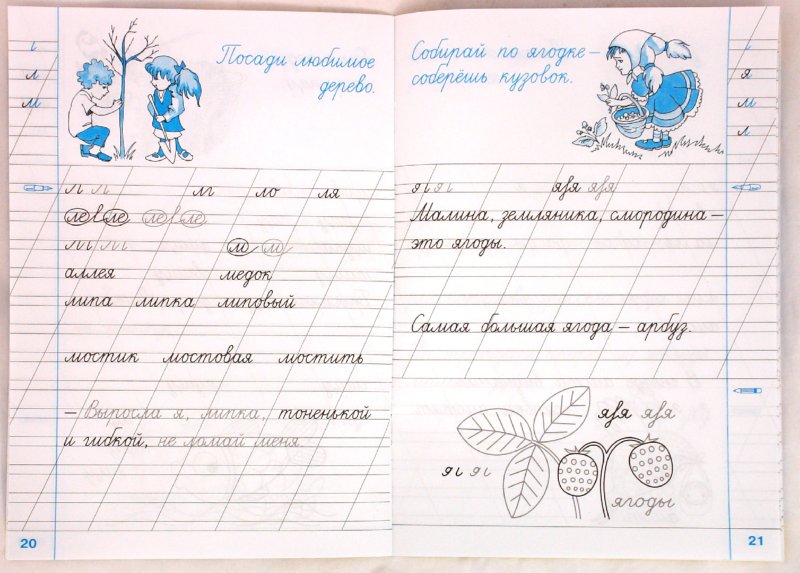 Посади любимое
дерево.
л
м
ле ле ле ле
м м
аллея медок
липа липка липовый
мостик мостовая мостить
– Выросла я, липка, тоненькой
и гибкой, не ломай меня
20
Собирай по ягодке –
соберёшь кузовок.
я
м
л
Малина, земляника, смородина –
это ягоды.
Самая большая ягода – арбуз.
яя яя
ягоды
21